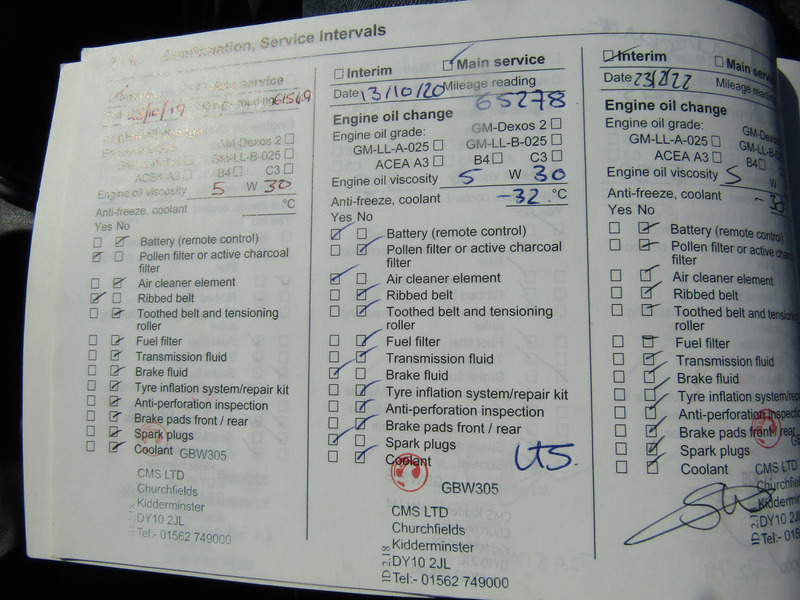 Confirmation, Service Intervals
service
19
61549
GM-Dexos 2
GM-LL-B-025
ACEA A3 B4 C3
Engine oil viscosity 5 W 30
Anti-freeze, coolant °C
Yes No
Battery (remote control)
Pollen filter or active charcoal
filter
Air cleaner element
Ribbed belt
Toothed belt and tensioning
roller
Fuel filter
Transmission fluid
Brake fluid
Tyre inflation system/repair kit
Anti-perforation inspection
Brake pads front / rear
Spark plugs
Coolant GBW305
CMS LTD
Churchfields
Kidderminster
DY10 2JL
Tel:- 01562 749000
Interim Main service
Date 13/10/20 Mileage reading
65278
Engine oil change
Engine oil grade: GM-Dexos 2
GM-LL-A-025 GM-LL-B-025
ACEA A3 B4 C3
Engine oil viscosity 5 W 30
Anti-freeze, coolant -32 °C
Yes No
Battery (remote control)
Pollen filter or active charcoal
filter
Air cleaner element
Ribbed belt
Toothed belt and tensioning
roller
Fuel filter
Transmission fluid
Brake fluid
Tyre inflation system/repair kit
Anti-perforation inspection
Brake pads front / rear
Spark plugs
Coolant
GBW305
CMS LTD
Churchfields
Kidderminster
DY10 2JL
ID 2.18
Tel:- 01562 749000
Interim Main
Date 23/2/22 Mileage
Engine oil change
Engine oil grade:
GM-LL-A-025
ACEA A3 B4
Engine oil viscosity 5 W
Anti-freeze, coolant -30
Yes No
Battery (remote control)
Pollen filter or active
filter
Air cleaner element
Ribbed belt
Toothed belt and
roller
Fuel filter
Transmission fluid
Brake fluid
Tyre inflation
Anti-perforation
Brake pads front / rear
Spark plugs
Coolant
CMS LTD
DY10 2JL
Tel:- 01562